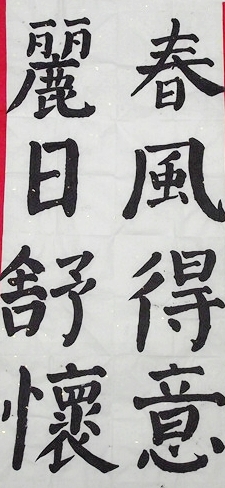 春風得意
麗日舒懷